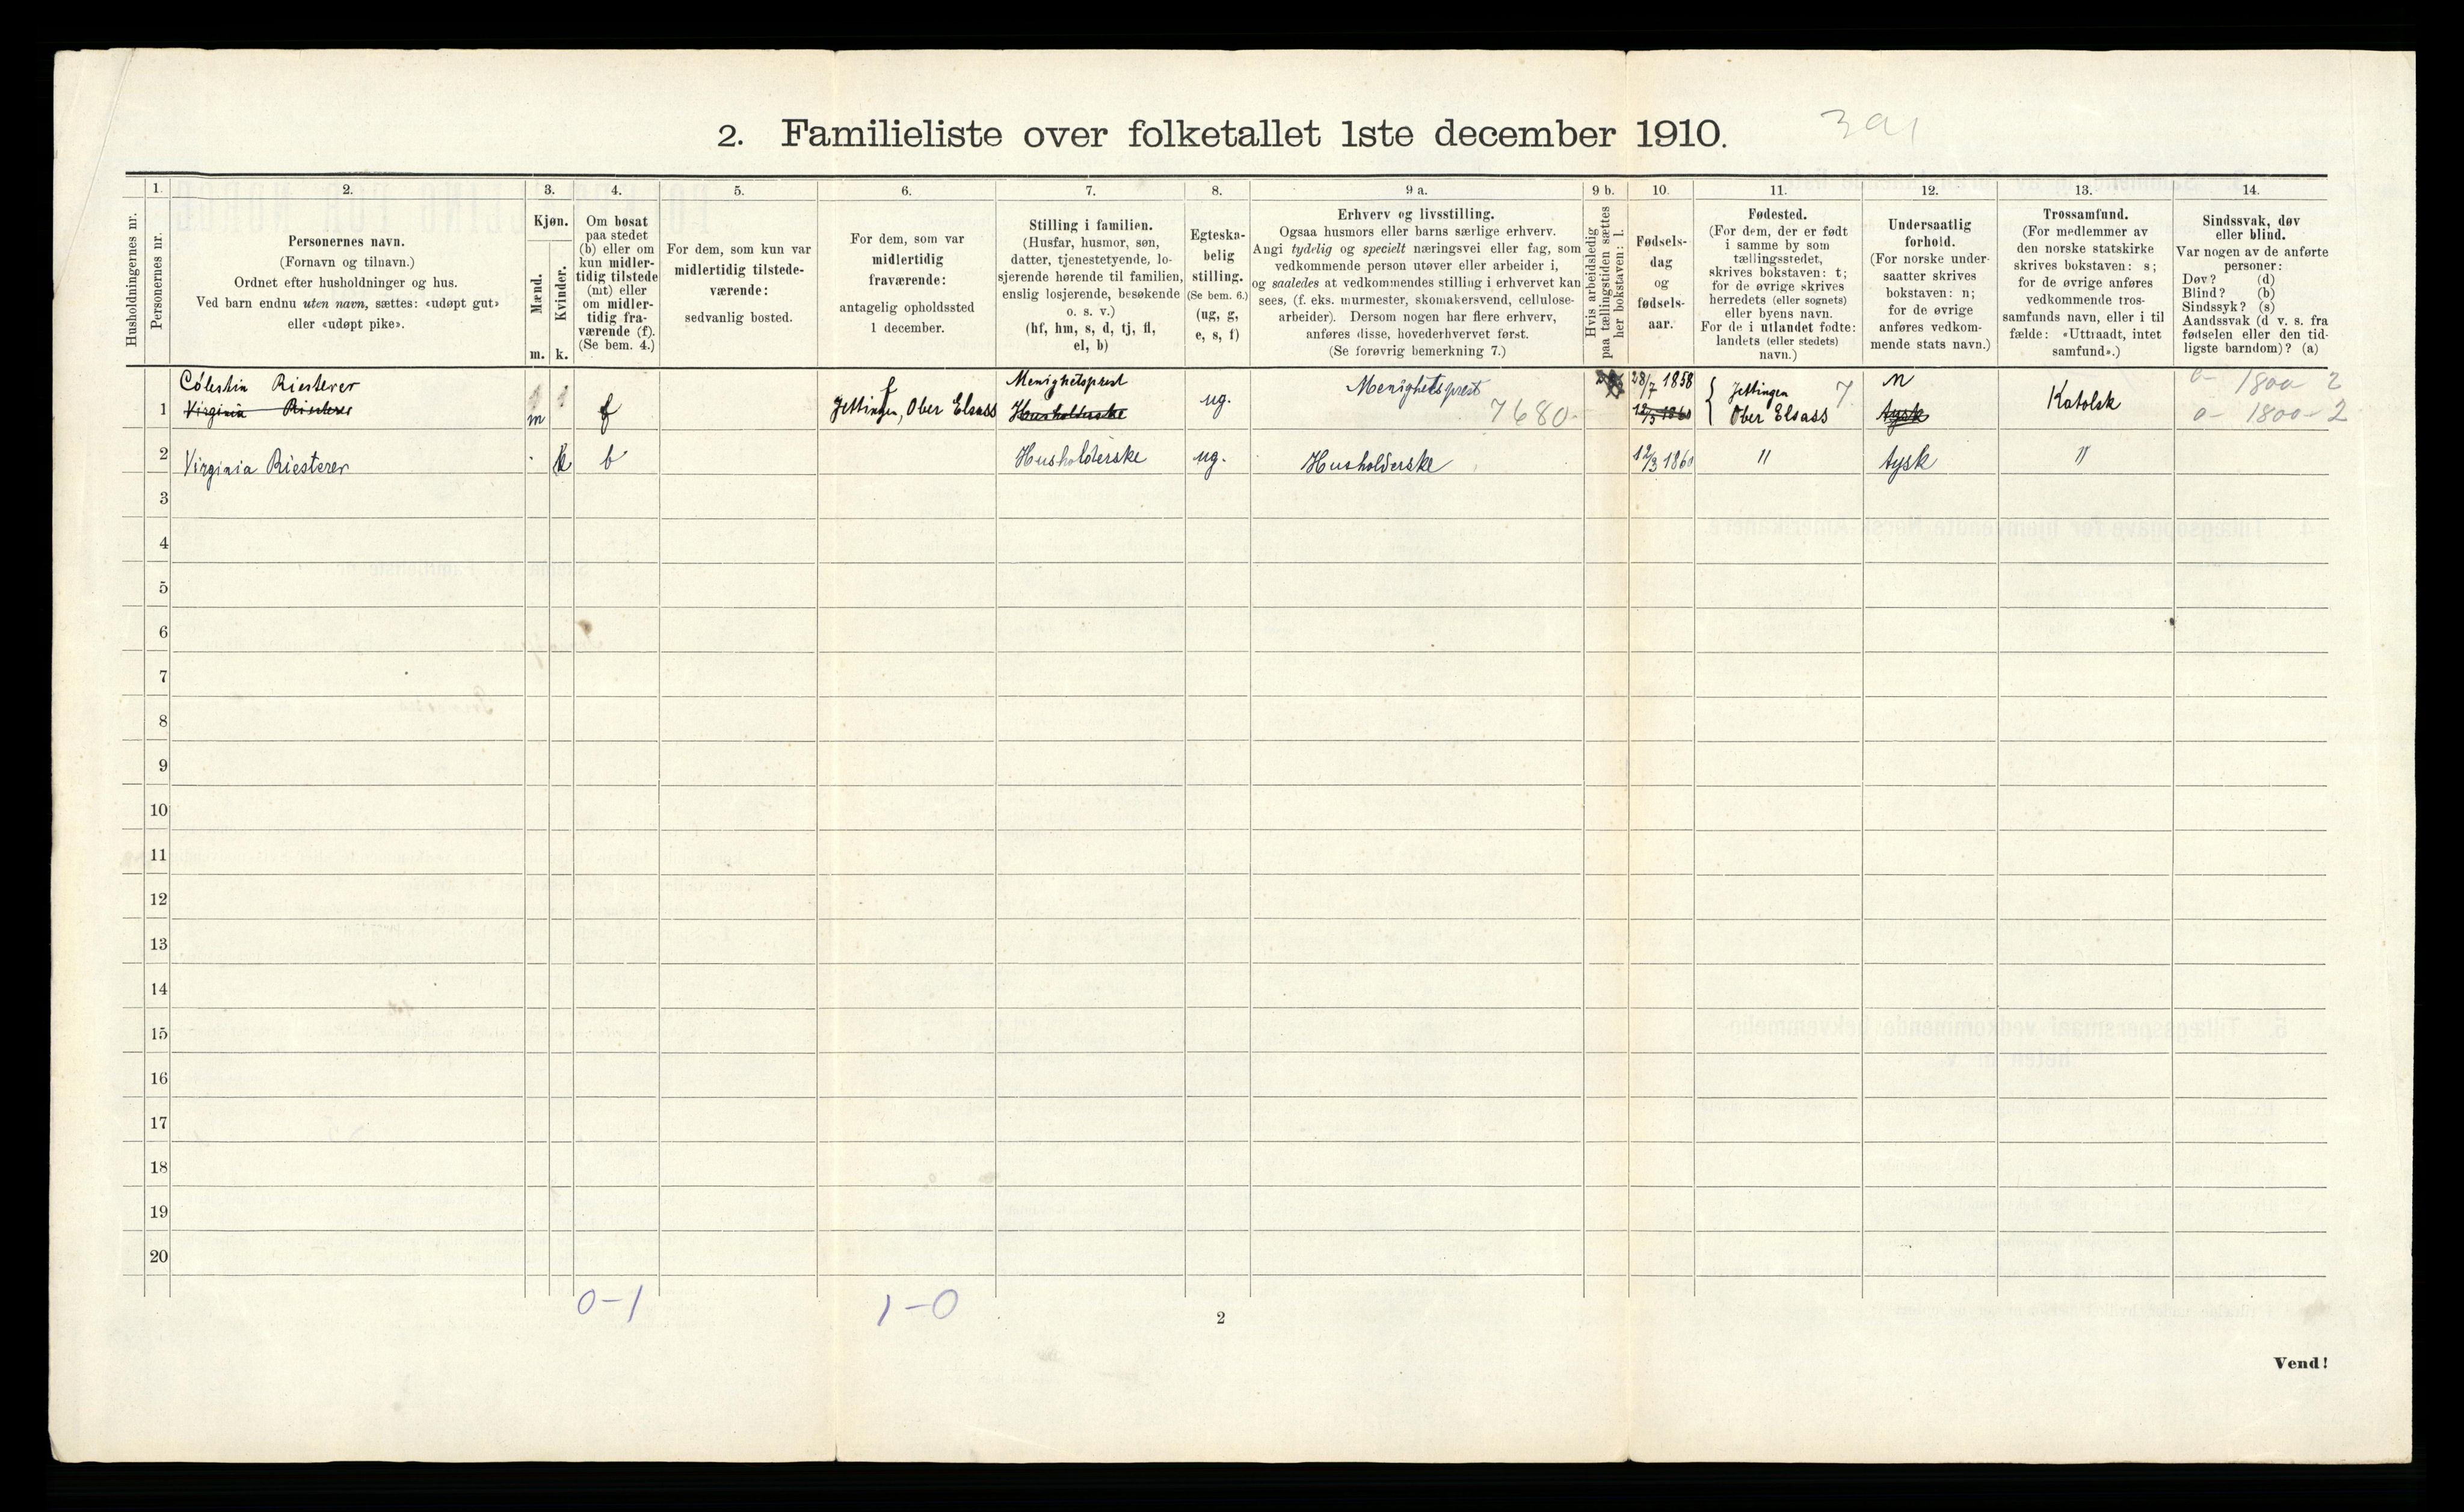 2. Familieliste over folketallet 1ste december 1910.
Husholdningernes nr.
1.
Personernes nr.
2.
Personernes navn.
(Fornavn og tilnavn.)
Ordnet efter husholdninger og hus.
Ved barn endnu uten navn, sættes: «udøpt gut»
eller «udøpt pike».
3.
Kjøn.
Mænd.
m.
Kvinder.
k.
4.
Om bosat
paa stedet
(b) eller om
kun midler-
tidig tilstede
(mt) eller
om midler-
tidig fra-
værende (f).
(Se bem. 4.)
5.
For dem, som kun var
midlertidig tilstede-
værende:
sedvanlig bosted.
6.
For dem, som var
midlertidig
fraværende:
antagelig opholdssted
1 december.
7.
Stilling i familien.
(Husfar, husmor, søn,
datter, tjenestetyende, lo-
sjerende hørende til familien,
enslig losjerende, besøkende
o. s. v.)
(hf, hm, s, d, tj, fl,
el, b)
8.
Egteska-
belig
stilling.
(Se bem. 6.)
(ug, g,
e, s, f)
9 a.
Erhverv og livsstilling.
Ogsaa husmors eller barns særlige erhverv.
Angi tydelig og specielt næringsvei eller fag, som
vedkommende person utøver eller arbeider i,
og saaledes at vedkommendes stilling i erhvervet kan
sees, (f. eks. murmester, skomakersvend, cellulose-
arbeider). Dersom nogen har flere erhverv,
anføres disse, hovederhvervet først.
(Se forøvrig bemerkning 7.)
9 b.
Hvis arbeidsledig
paa tællingstiden sættes
her bokstaven: l.
10.
Fødsels-
dag
og
fødsels-
aar.
11.
Fødested.
(For dem, der er født
i samme by som
tællingsstedet,
skrives bokstaven: t;
for de øvrige skrives
herredets (eller sognets)
eller byens navn.
For de i utlandet fødte:
landets (eller stedets)
navn.)
12.
Undersaatlig
forhold.
(For norske under-
saatter skrives
bokstaven: n;
for de øvrige
anføres vedkom-
mende stats navn.)
13.
Trossamfund.
(For medlemmer av
den norske statskirke
skrives bokstaven: s;
for de øvrige anføres
vedkommende tros-
samfunds navn, eller i til
fælde: «Uttraadt, intet
samfund».)
14.
Sindssvak, døv
eller blind.
Var nogen av de anførte
personer:
Døv? (d)
Blind? (b)
Sindssyk? (s)
Aandssvak (d v. s. fra
fødselen eller den tid-
ligste barndom)? (a)
Cölestin Riesterer f Menighetsprest 28/7 1858 n 0- 1800 2
1 Virginia Riesterer m f Jettingen, Ober Elsass Husholderske ug. Menighetsprest 7680- 12/3 1860 { Jettingen Ober Elsass 7 tysk Katolsk 0- 1800- 2
2 Virginia Riesterer k b Husholderske ug. Husholderske 12/3 1860 " tysk "
3
4
5
6
7
8
9
10
11
12
13
14
15
16
17
18
19
20
0-1 1-0
2
Vend!